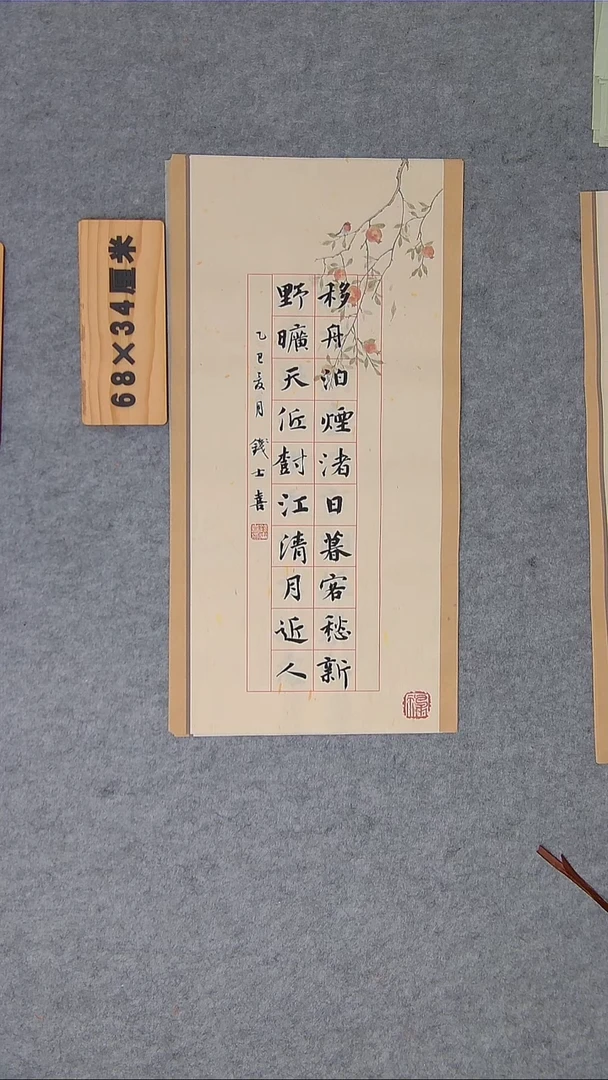 68×34厘米
移舟泊煙渚日暮客愁新
野曠天低樹江清月近人
乙巳夏月 錢士喜